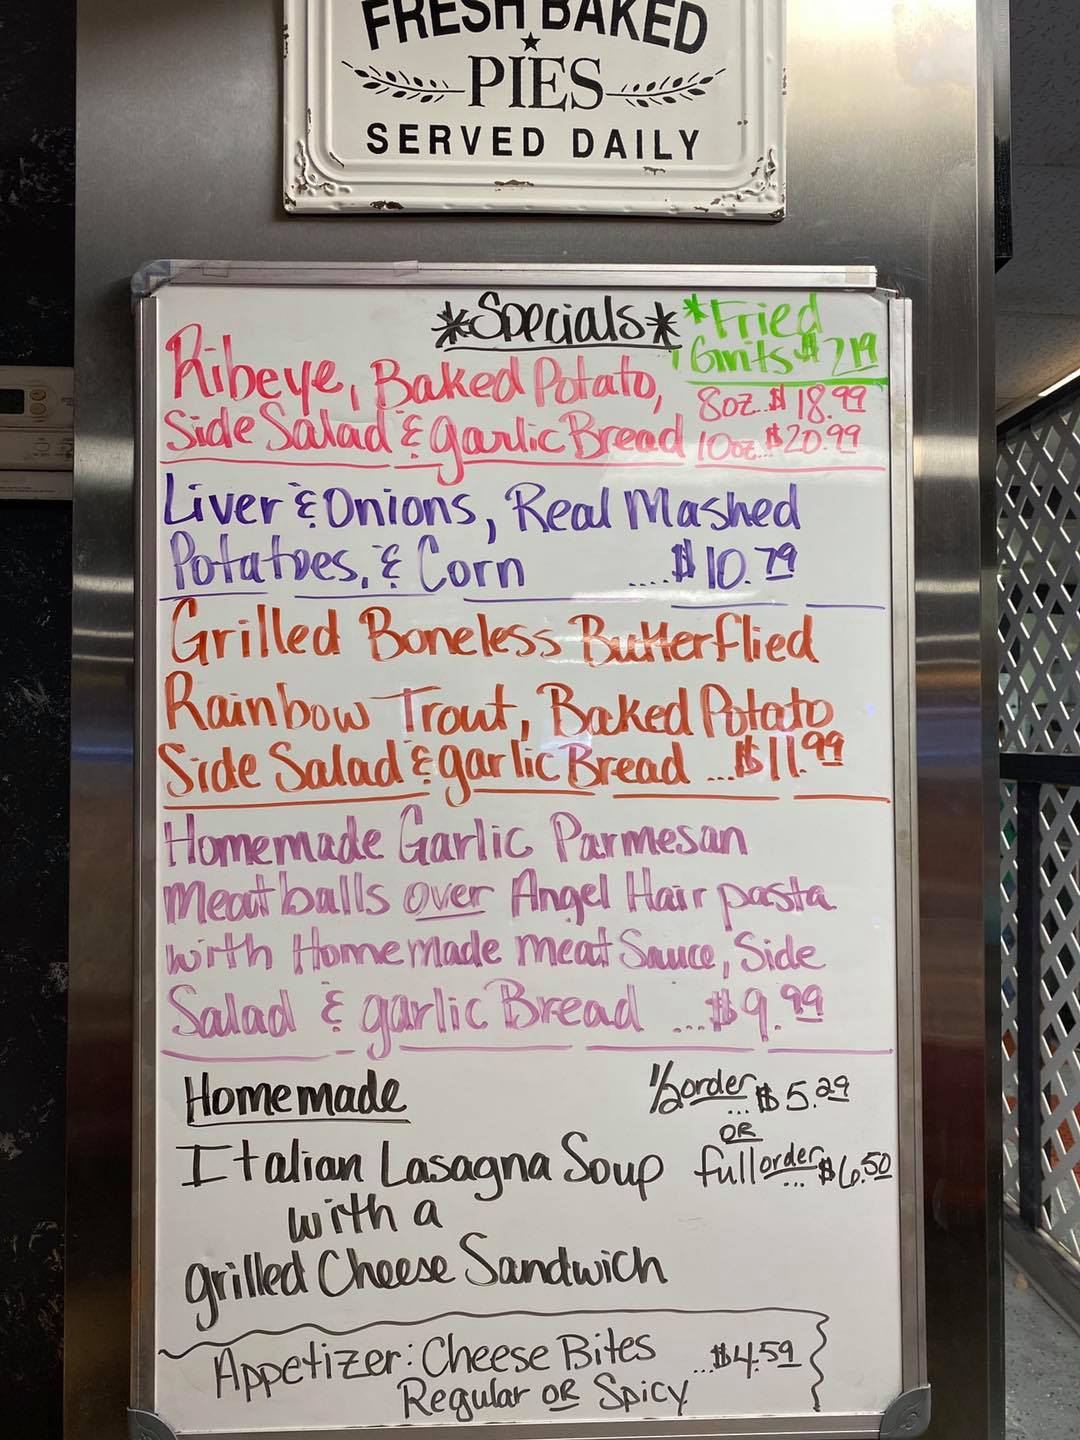 FRESH BAKED
PIES
SERVED DAILY
*Specials*
*Fried
Grits $2.19
Ribeye, Baked Potato,
Side Salad & garlic Bread
8oz..$18.99
10oz...$20.99
Liver & Onions, Real Mashed
Potatoes, & Corn ....$10.79
Grilled Boneless Butterflied
Rainbow Trout, Baked Potato
Side Salad & garlic Bread ...$11.99
Homemade Garlic Parmesan
Meatballs over Angel Hair pasta
with Homemade meat Sauce, Side
Salad & garlic Bread ...$9.99
Homemade
Italian Lasagna Soup
with a
grilled Cheese Sandwich
1/2 order ...$5.29
OR
full order ...$6.50
Appetizer: Cheese Bites ...$4.59
Regular OR Spicy